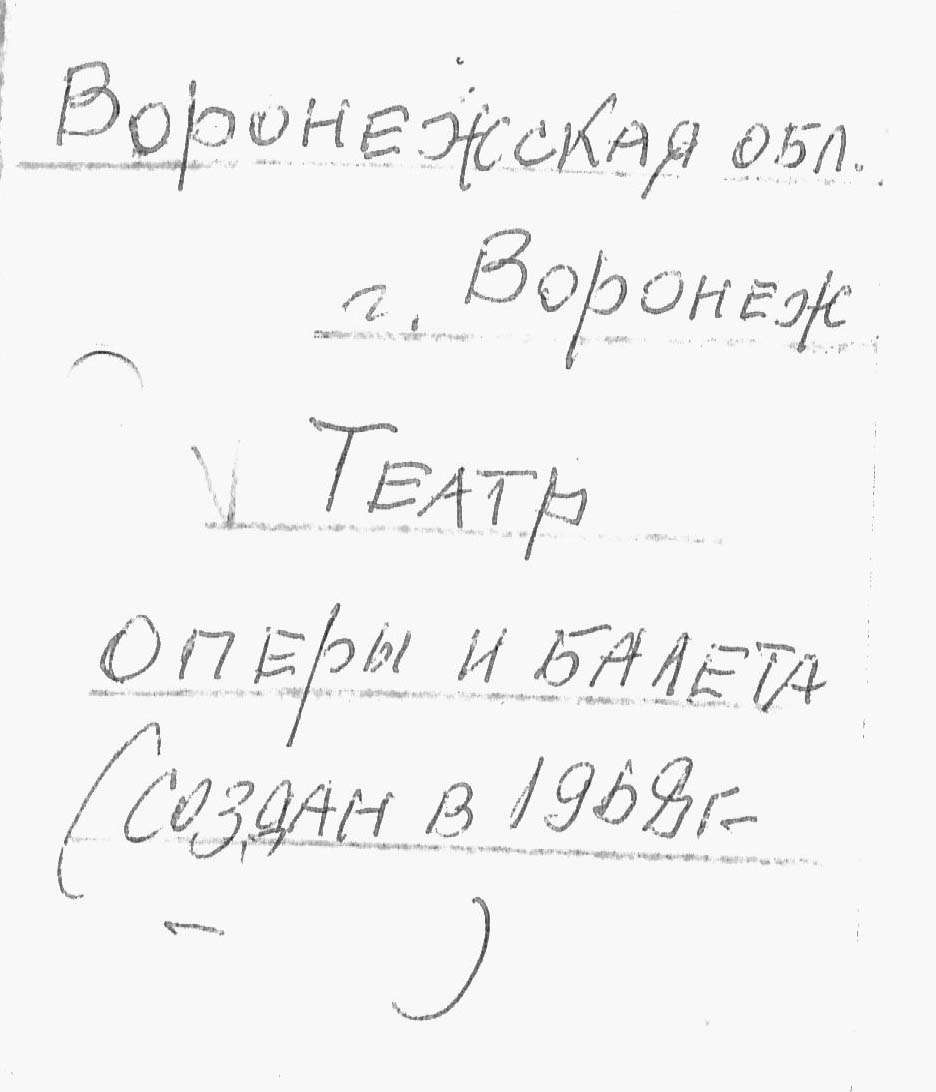 Воронежская обл.
г. Воронеж
V Театр
оперы и балета
(создан в 1968 г.
– )